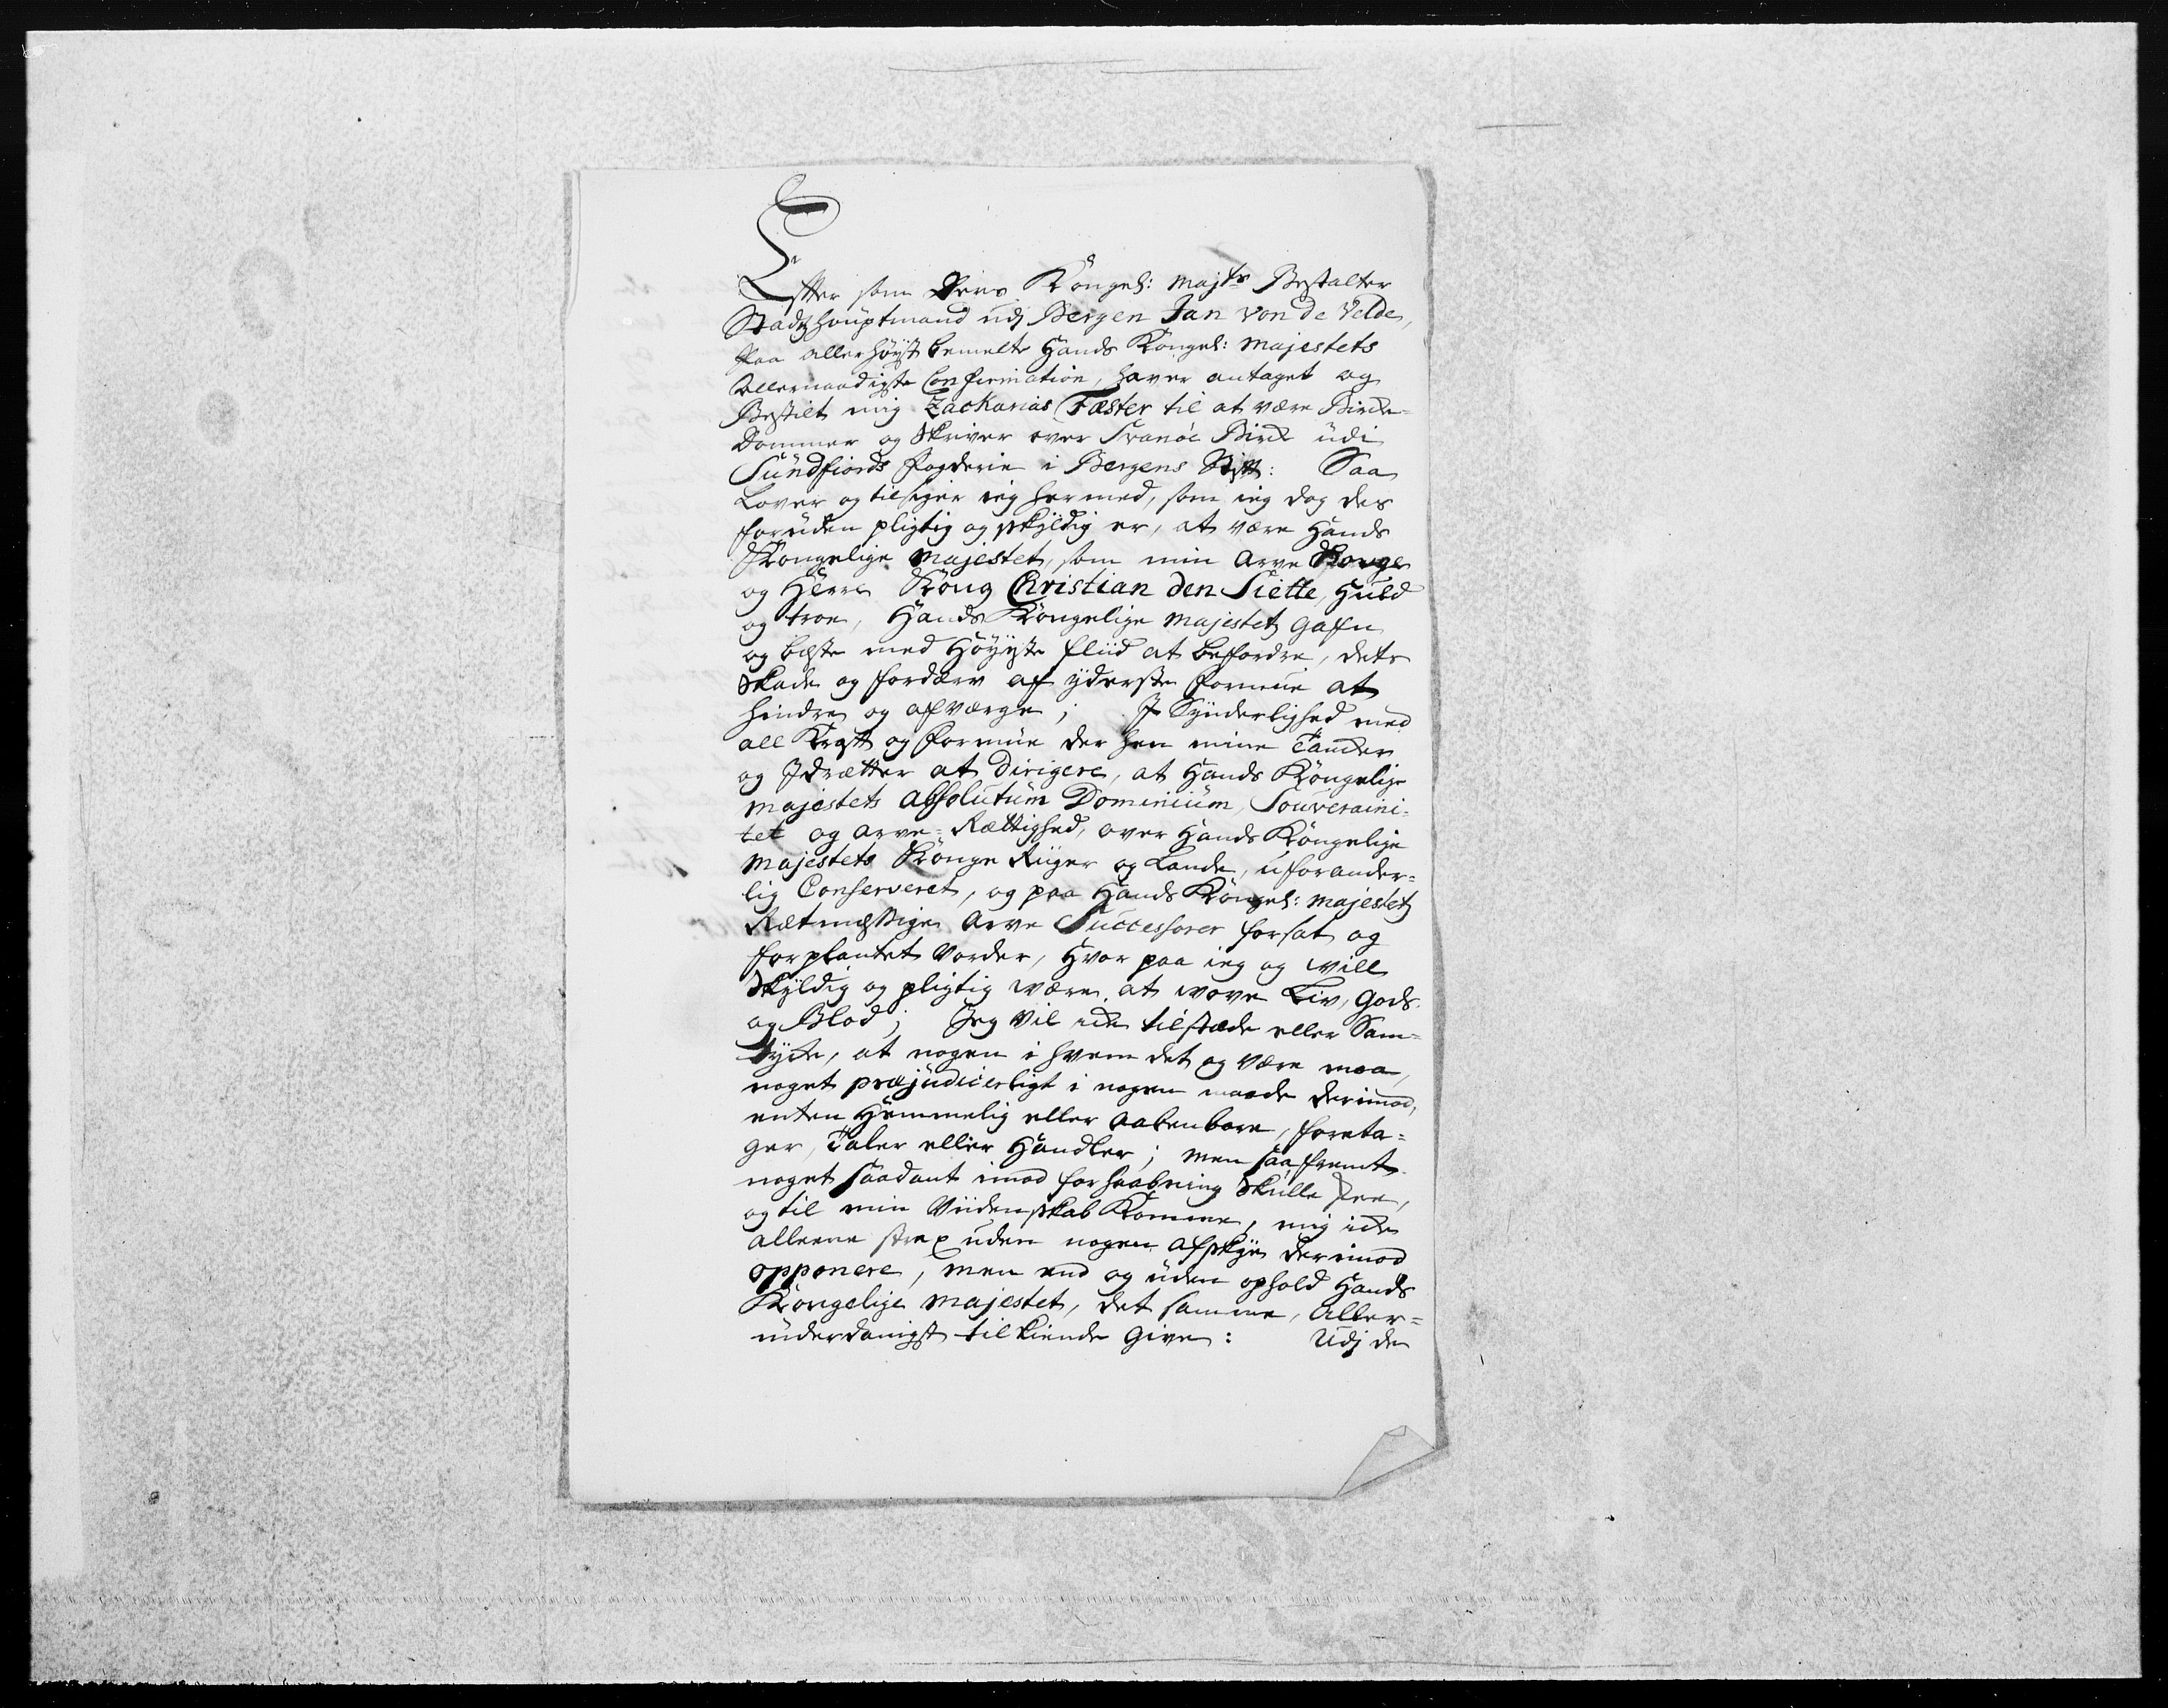 Efftter som Deris Kongel: Majts Bestalter
Stadtzhouptmand udj Bergen Jan von de Velde,
Paa allerhøyst bemelte Hands Kongel: Majestets
Allernaadigste Confirmation, haver antaget og
Bestilt mig Zackarias Fæster til at være Birke-
Dommer og Skriver over Svanøe Birk udi
Sundfiords fogderie i Bergens Stift: Saa
Lover og tilsiger ieg hermed, som ieg dog des
foruden pligtig og skyldig er, at være Hands
Kongelige Majestet, som min Arve Konge
og Herre Kong Christian den Siette, Huld
og troe, Hands Kongelige Majestetz gafn
og beste med Høyeste fliid at befordre, dets
Skade og fordærv af yderste formue at
hindre og afværge; J Synderlighed med
all Krafft og formue der hen mine Tancker
og Jdrætter at dirigere, at Hands Kongelige
Majestets Absolutum Dominium, Souveraini-
tet og Arve-Rættighed, over Hands Kongelige
Majestets Konge Riiger og Lande, uforander-
lig Conserveret, og paa Hands Kongel: Majestetz
Rætmessige Arve Successorer forsat og
forplantet vorder, Hvor paa ieg og will
Skyldig og pligtig være at vove Liv, Gods
og Blod; Jeg vil icke tilstæde eller Sam-
tycke, at nogen i hvem det og være maa,
noget præjudicerligt i nogen maade derimod,
enten Hemmelig eller Aabenbare, foreta-
ger, Taler eller Handler; Men saafremt
noget saadant imod forhaabning Skulle skee,
og til min Viidenskab Komme, mig icke
alleene strax uden nogen Afskye derimod
opponere, men end og uden ophold Hands
Kongelige Majestet, det samme, Aller-
underdanigst tilkiende give: Udj de